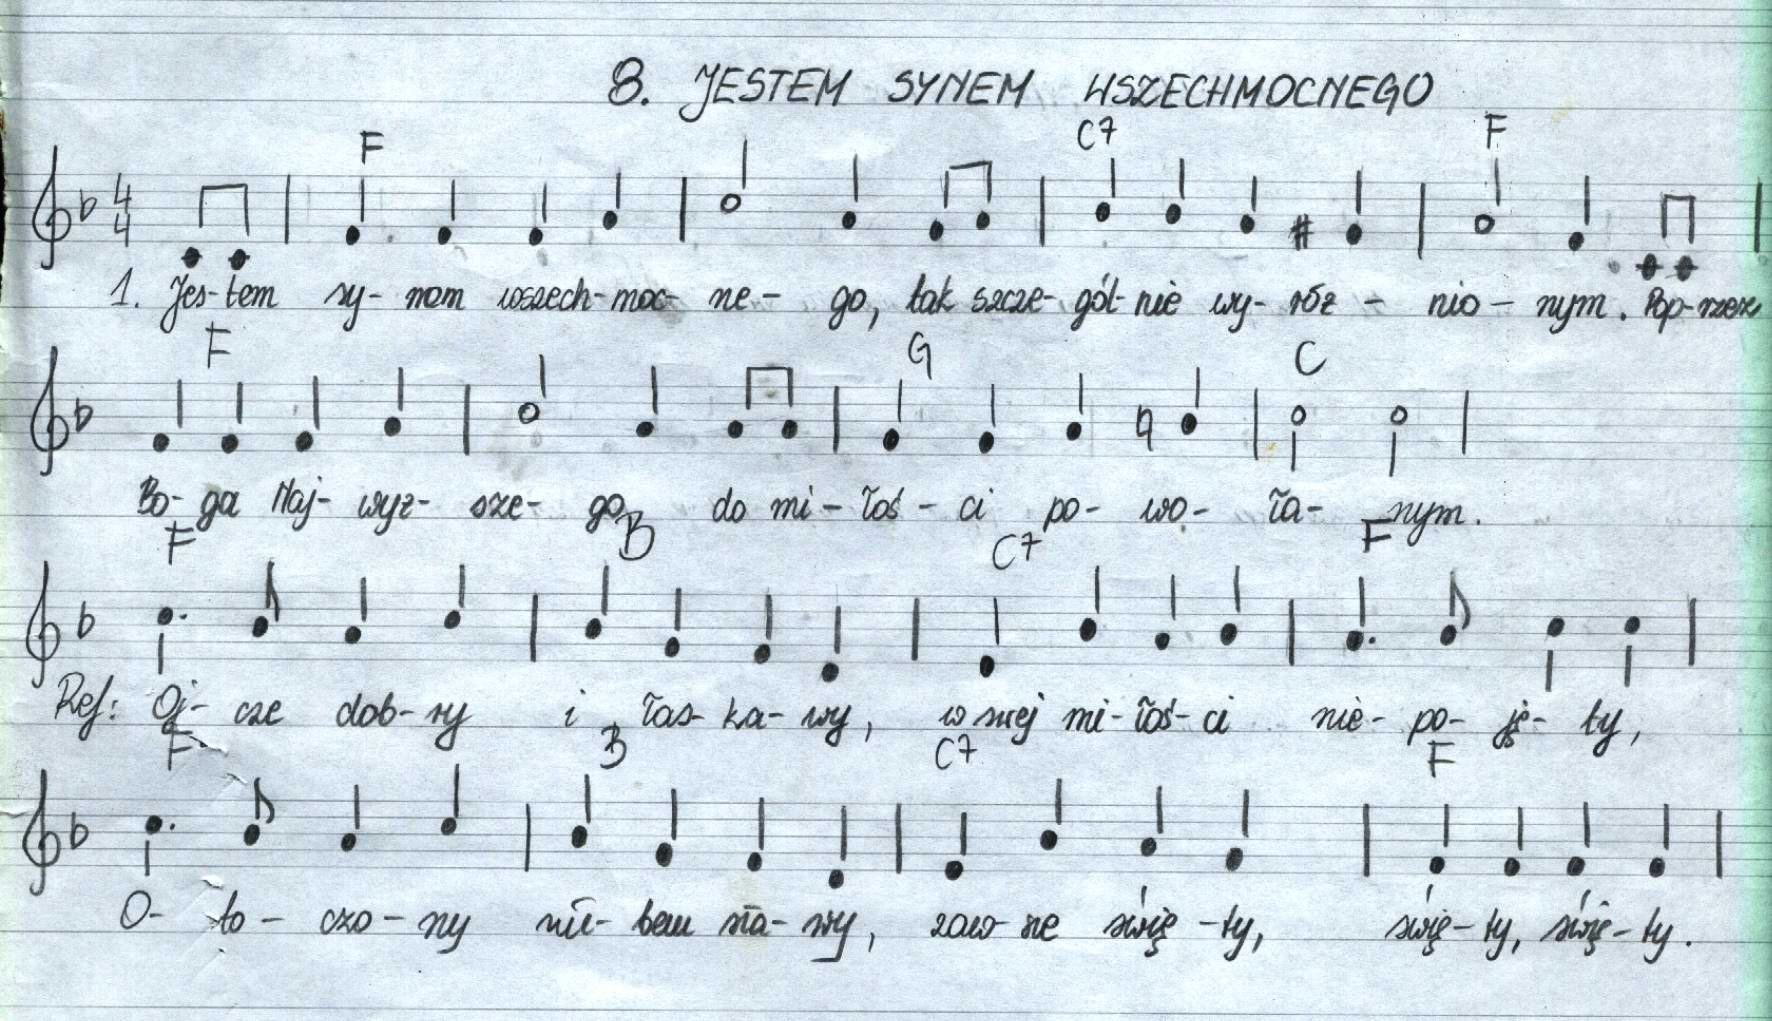 8. JESTEM SYNEM WSZECHMOCNEGO
F C7 F
4
4
1. Jes-tem sy-nem wszech-moc-ne-go, tak szcze-gól-nie wy-róż-nio-nym. Pop-rzez
F G C
Bo-ga Naj-wyż-sze-go do mi-łoś-ci po-wo-ła-nym.
F B C7 F
Ref: Oj-cze dob-ry i łas-ka-wy, w swej mi-łoś-ci nie-po-ję-ty,
F B C7 F
O-to-czo-ny nie-bem sła-wy, zaw-sze świę-ty, świę-ty, świę-ty.